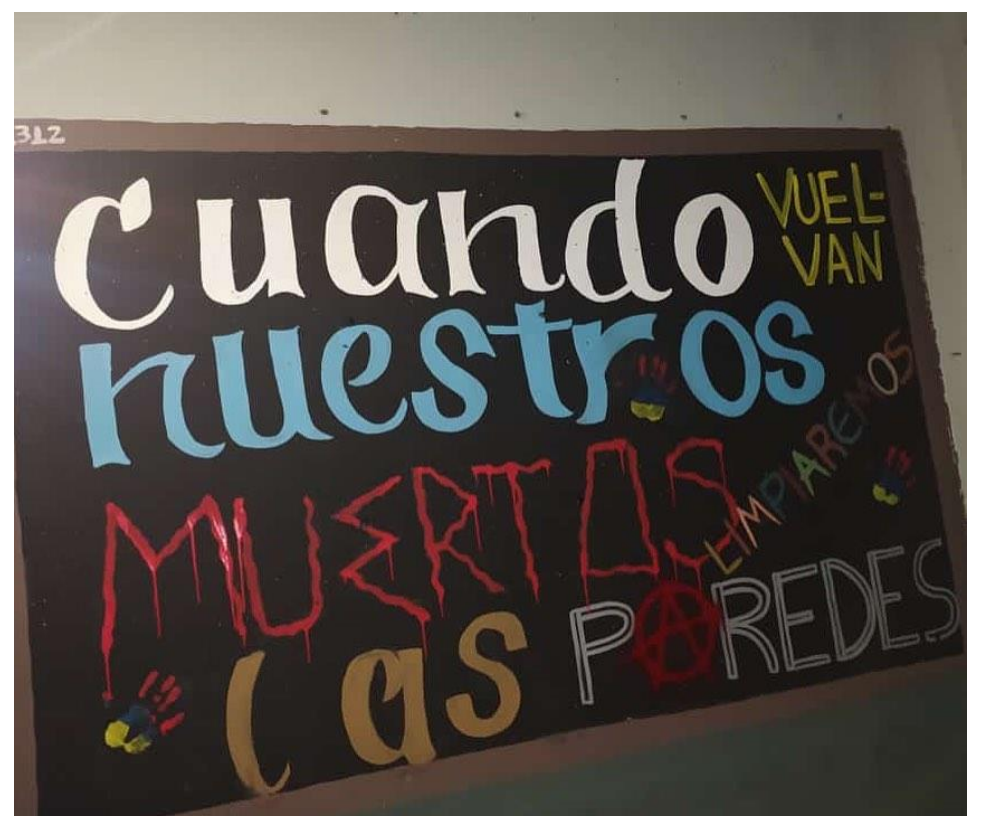 312
cuando VUEL-
VAN
nuestros
MUERTOS LIMPIAREMOS
las PAREDES